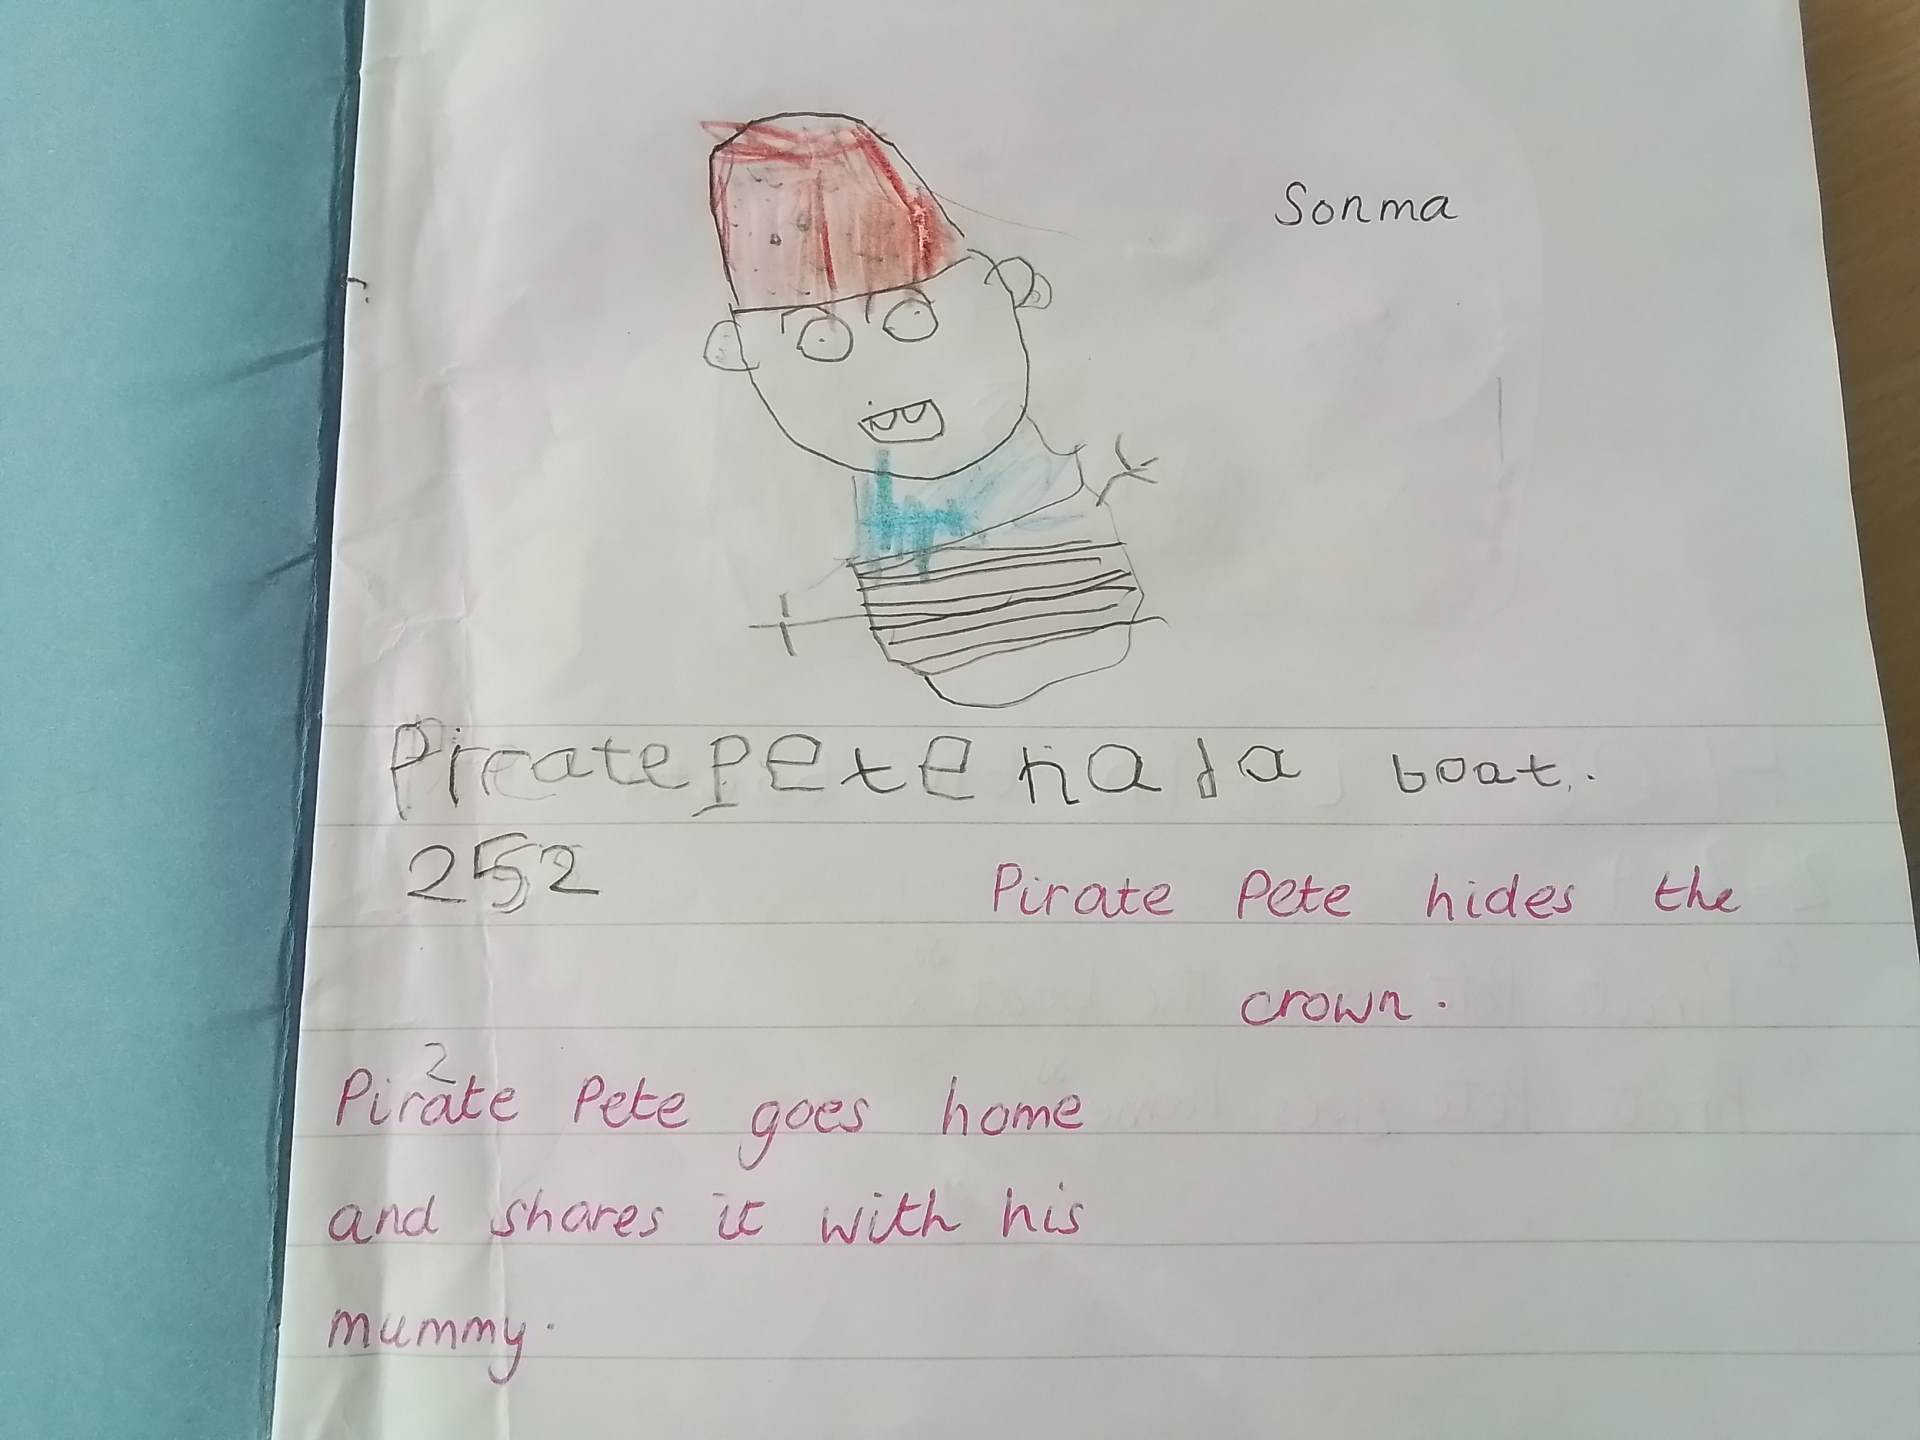 Sonma
Pircate pete had a boat.
252
Pirate Pete hides the
crown.
2
Pirate Pete goes home
and shares it with his
mummy.